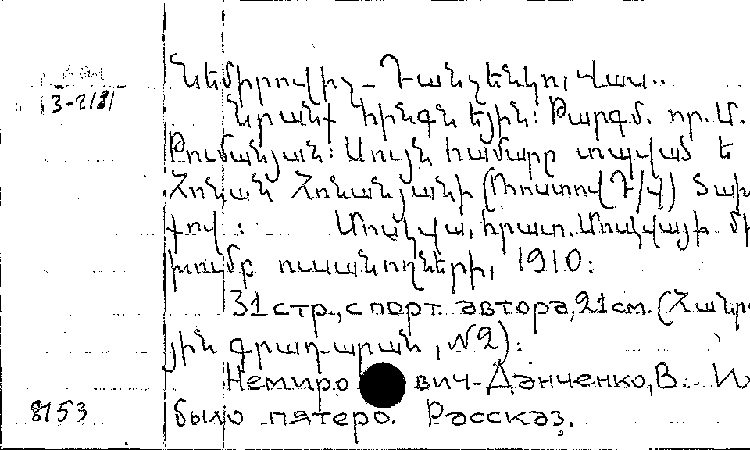 Նեմիրովիչ-Դանչենկո, Վաս..
3-2131
Նրանք հինգն էին: Թարգմ. որ. Մ.
Թումանյան: Սույն համարը տպված է
Հովնան Հովնանյանի (Ռոստով Դ/վ) ծախ
քով: Մոսկվա, հրատ. Մոսկվայի մի
խումբ ուսանողների, 1910:
31 стр., с порт. автора, 21 см. (Հանր
յին գրադարան, №2):
Немиро вич-Данченко, В. И
8153 было пятеро. Рассказ.